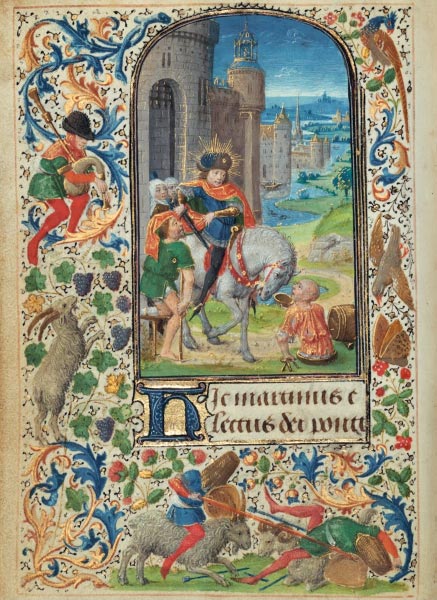 Hic martinus e
lectus dei ponti